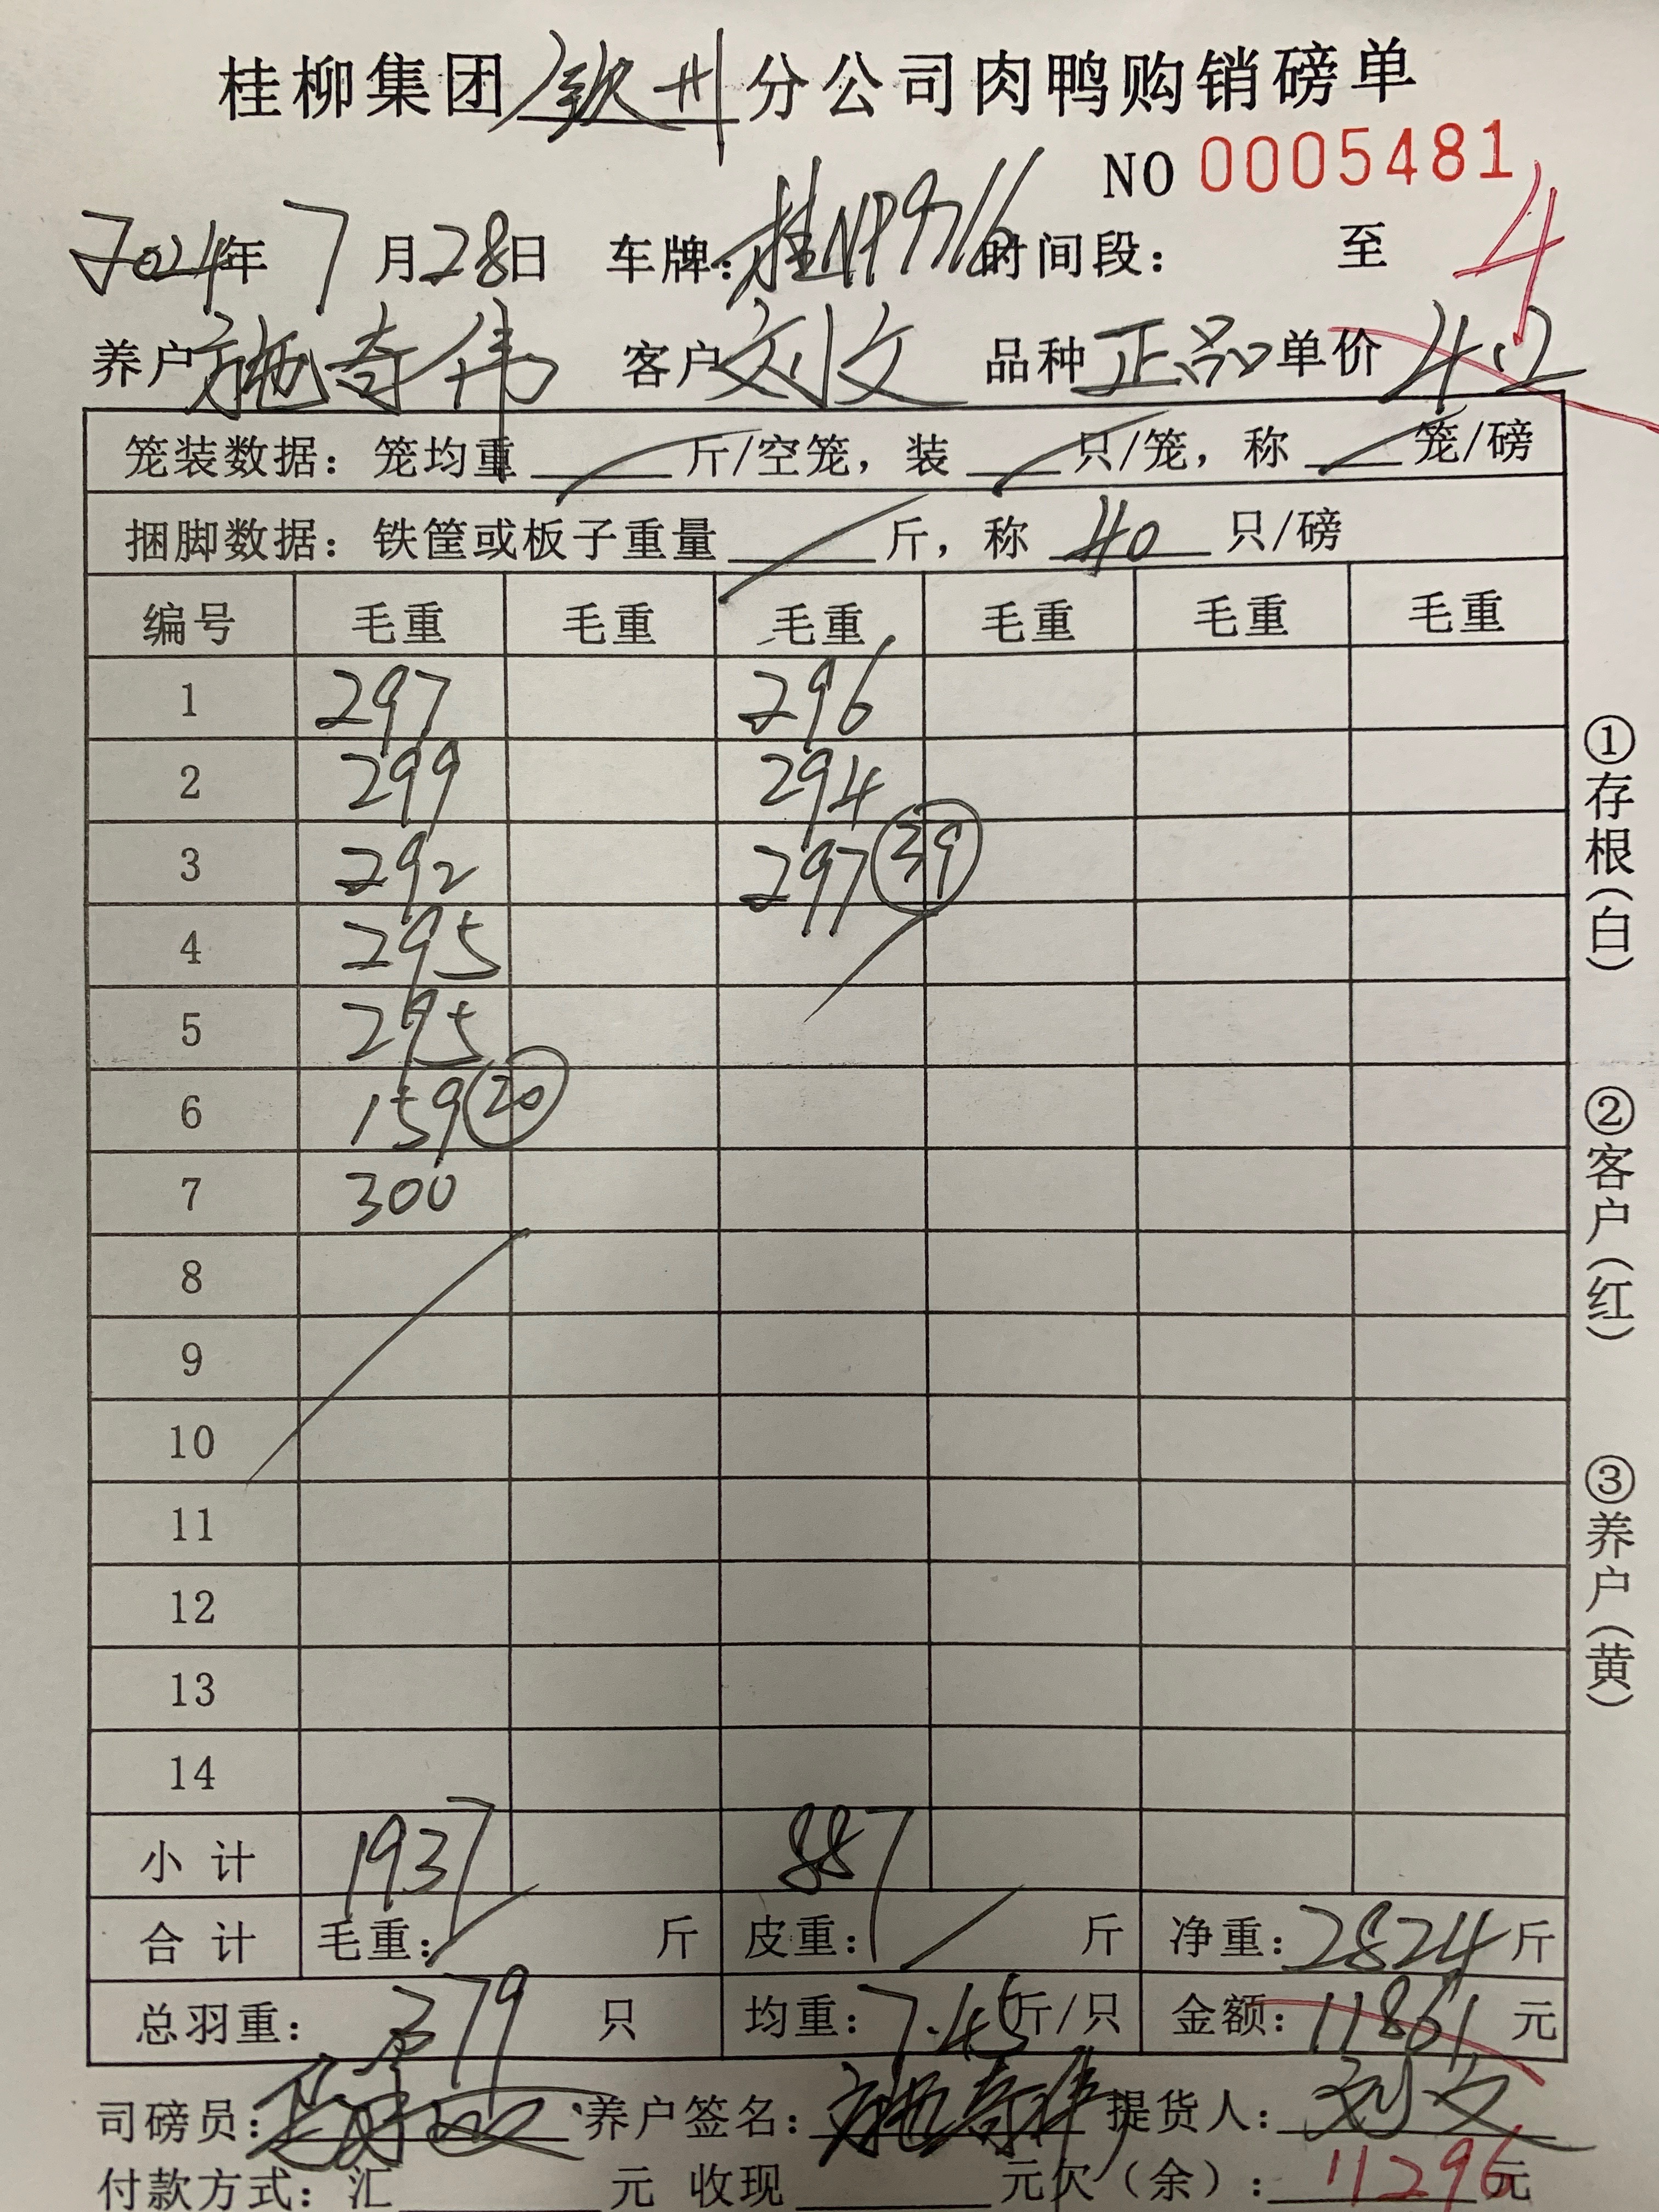 桂柳集团钦州分公司肉鸭购销磅单
NO 0005481
2024年7月28日 车牌:桂NP9716 时间段: 至 4
养户 施奇伟 客户 刘文 品种 正品 单价 4.2
笼装数据: 笼均重 斤/空笼, 装 只/笼, 称 笼/磅
捆脚数据: 铁筐或板子重量 斤, 称 40 只/磅
编号 毛重 毛重 毛重 毛重 毛重 毛重
1 297 296
2 299 294
3 292 297 39
4 295
5 295
6 159 20
7 300
8
9
10
11
12
13
14
小计 1937 887
合计 毛重: 斤 皮重: 斤 净重: 2824 斤
总羽重: 379 只 均重: 7.45 斤/只 金额: 11861 元
司磅员: 养户签名: 施奇伟 提货人: 刘文
付款方式: 汇 元 收现 元欠(余): 11296 元
①存根(白)
②客户(红)
③养户(黄)